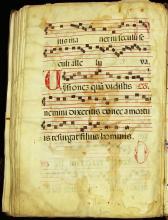 ma net in seculū se
culi alle lu ya.
Visionez quā vidistis
nemini dixeritis donec a mortu
is resurgat filius hominis.